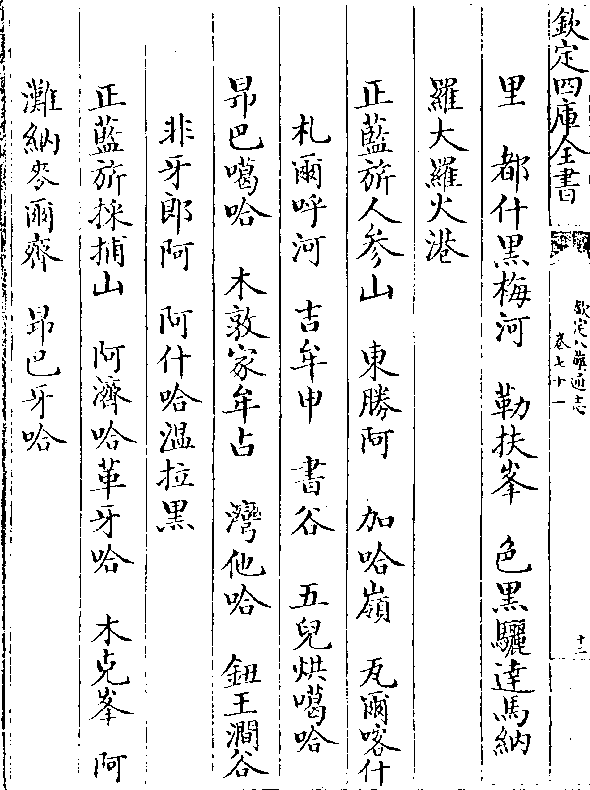 欽定四庫全書
欽定八旗通志
卷七十一
十二
里　都什黑梅河　勒扶峯　色黑驪達馬納
羅大羅火港
正藍旂人參山　東勝阿　加哈嶺　瓦爾喀什
札爾呼河　吉牟申　書谷　五兒烘噶哈
昂巴噶哈　木敦家牟占　灣他哈　鈕王澗谷
非牙郎阿　阿什哈溫拉黑
正藍旂採捕山　阿濟哈革牙哈　木克峯　阿
灘納麥爾齊　昂巴牙哈